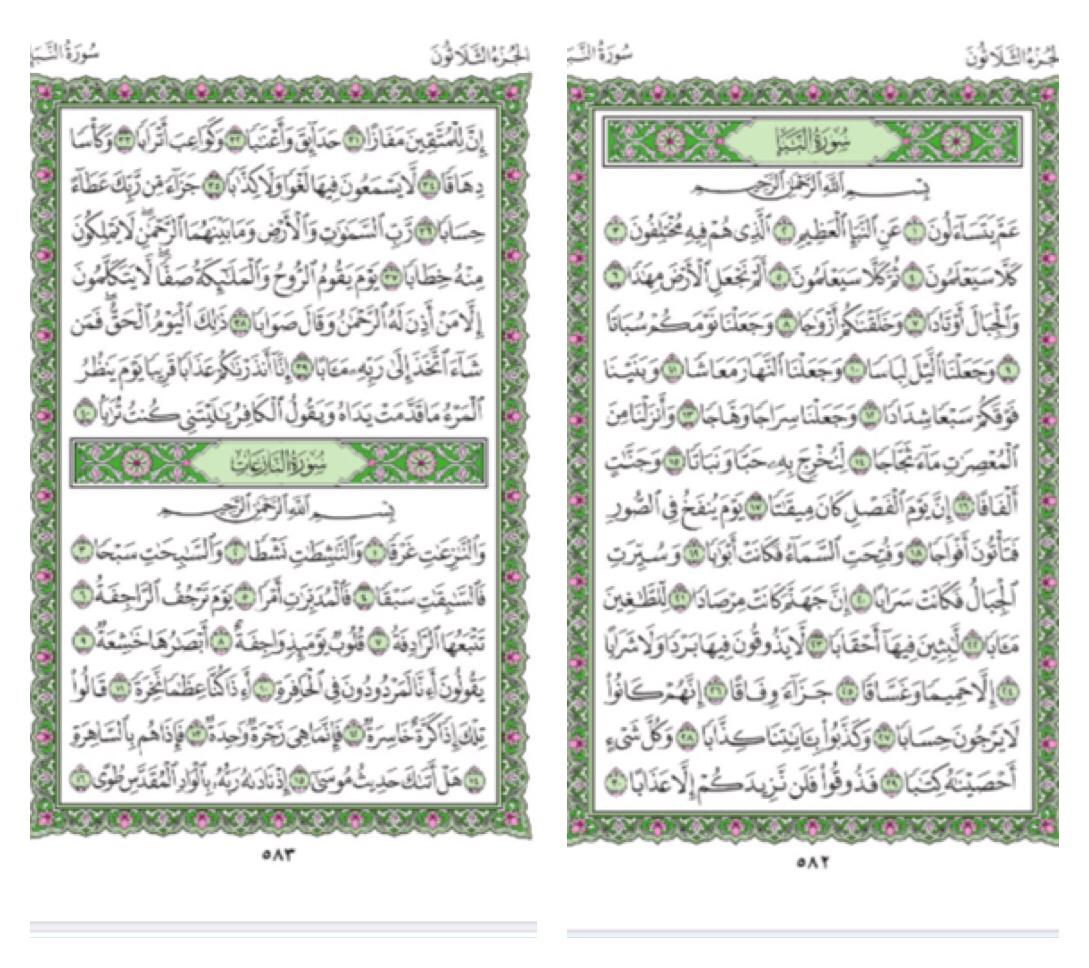 الجزء الثلاثون
سورة النبإ
سُورَةُ النَّبَإِ
بِسْمِ ٱللَّهِ ٱلرَّحْمَٰنِ ٱلرَّحِيمِ
عَمَّ يَتَسَآءَلُونَ ١ عَنِ ٱلنَّبَإِ ٱلْعَظِيمِ ٢ ٱلَّذِى هُمْ فِيهِ مُخْتَلِفُونَ ٣
كَلَّا سَيَعْلَمُونَ ٤ ثُمَّ كَلَّا سَيَعْلَمُونَ ٥ أَلَمْ نَجْعَلِ ٱلْأَرْضَ مِهَٰدًا ٦
وَٱلْجِبَالَ أَوْتَادًا ٧ وَخَلَقْنَٰكُمْ أَزْوَٰجًا ٨ وَجَعَلْنَا نَوْمَكُمْ سُبَاتًا
٩ وَجَعَلْنَا ٱلَّيْلَ لِبَاسًا ١٠ وَجَعَلْنَا ٱلنَّهَارَ مَعَاشًا ١١ وَبَنَيْنَا
فَوْقَكُمْ سَبْعًا شِدَادًا ١٢ وَجَعَلْنَا سِرَاجًا وَهَّاجًا ١٣ وَأَنزَلْنَا مِنَ
ٱلْمُعْصِرَٰتِ مَآءً ثَجَّاجًا ١٤ لِّنُخْرِجَ بِهِۦ حَبًّا وَنَبَاتًا ١٥ وَجَنَّٰتٍ
أَلْفَافًا ١٦ إِنَّ يَوْمَ ٱلْفَصْلِ كَانَ مِيقَٰتًا ١٧ يَوْمَ يُنفَخُ فِى ٱلصُّورِ
فَتَأْتُونَ أَفْوَاجًا ١٨ وَفُتِحَتِ ٱلسَّمَآءُ فَكَانَتْ أَبْوَٰبًا ١٩ وَسُيِّرَتِ
ٱلْجِبَالُ فَكَانَتْ سَرَابًا ٢٠ إِنَّ جَهَنَّمَ كَانَتْ مِرْصَادًا ٢١ لِّلطَّٰغِينَ
مَـَٔابًا ٢٢ لَّٰبِثِينَ فِيهَآ أَحْقَابًا ٢٣ لَّا يَذُوقُونَ فِيهَا بَرْدًا وَلَا شَرَابًا
٢٤ إِلَّا حَمِيمًا وَغَسَّاقًا ٢٥ جَزَآءً وِفَاقًا ٢٦ إِنَّهُمْ كَانُوا۟
لَا يَرْجُونَ حِسَابًا ٢٧ وَكَذَّبُوا۟ بِـَٔايَٰتِنَا كِذَّابًا ٢٨ وَكُلَّ شَىْءٍ
أَحْصَيْنَٰهُ كِتَٰبًا ٢٩ فَذُوقُوا۟ فَلَن نَّزِيدَكُمْ إِلَّا عَذَابًا ٣٠
٥٨٢
الجزء الثلاثون
سورة النبإ
إِنَّ لِلْمُتَّقِينَ مَفَازًا ٣١ حَدَآئِقَ وَأَعْنَٰبًا ٣٢ وَكَوَاعِبَ أَتْرَابًا ٣٣ وَكَأْسًا
دِهَاقًا ٣٤ لَّا يَسْمَعُونَ فِيهَا لَغْوًا وَلَا كِذَّٰبًا ٣٥ جَزَآءً مِّن رَّبِّكَ عَطَآءً
حِسَابًا ٣٦ رَّبِّ ٱلسَّمَٰوَٰتِ وَٱلْأَرْضِ وَمَا بَيْنَهُمَا ٱلرَّحْمَٰنِ ۖ لَا يَمْلِكُونَ
مِنْهُ خِطَابًا ٣٧ يَوْمَ يَقُومُ ٱلرُّوحُ وَٱلْمَلَٰٓئِكَةُ صَفًّا ۖ لَّا يَتَكَلَّمُونَ
إِلَّا مَنْ أَذِنَ لَهُ ٱلرَّحْمَٰنُ وَقَالَ صَوَابًا ٣٨ ذَٰلِكَ ٱلْيَوْمُ ٱلْحَقُّ ۖ فَمَن
شَآءَ ٱتَّخَذَ إِلَىٰ رَبِّهِۦ مَـَٔابًا ٣٩ إِنَّآ أَنذَرْنَٰكُمْ عَذَابًا قَرِيبًا يَوْمَ يَنظُرُ
ٱلْمَرْءُ مَا قَدَّمَتْ يَدَاهُ وَيَقُولُ ٱلْكَافِرُ يَٰلَيْتَنِى كُنتُ تُرَٰبًۢا ٤٠
سُورَةُ النَّازِعَاتِ
بِسْمِ ٱللَّهِ ٱلرَّحْمَٰنِ ٱلرَّحِيمِ
وَٱلنَّٰزِعَٰتِ غَرْقًا ١ وَٱلنَّٰشِطَٰتِ نَشْطًا ٢ وَٱلسَّٰبِحَٰتِ سَبْحًا ٣
فَٱلسَّٰبِقَٰتِ سَبْقًا ٤ فَٱلْمُدَبِّرَٰتِ أَمْرًا ٥ يَوْمَ تَرْجُفُ ٱلرَّاجِفَةُ ٦
تَتْبَعُهَا ٱلرَّادِفَةُ ٧ قُلُوبٌ يَوْمَئِذٍ وَاجِفَةٌ ٨ أَبْصَٰرُهَا خَٰشِعَةٌ ٩
يَقُولُونَ أَءِنَّا لَمَرْدُودُونَ فِى ٱلْحَافِرَةِ ١٠ أَءِذَا كُنَّا عِظَٰمًا نَّخِرَةً ١١ قَالُوا۟
تِلْكَ إِذًا كَرَّةٌ خَاسِرَةٌ ١٢ فَإِنَّمَا هِىَ زَجْرَةٌ وَٰحِدَةٌ ١٣ فَإِذَا هُم بِٱلسَّاهِرَةِ
١٤ هَلْ أَتَىٰكَ حَدِيثُ مُوسَىٰٓ ١٥ إِذْ نَادَىٰهُ رَبُّهُۥ بِٱلْوَادِ ٱلْمُقَدَّسِ طُوًى ١٦
٥٨٣